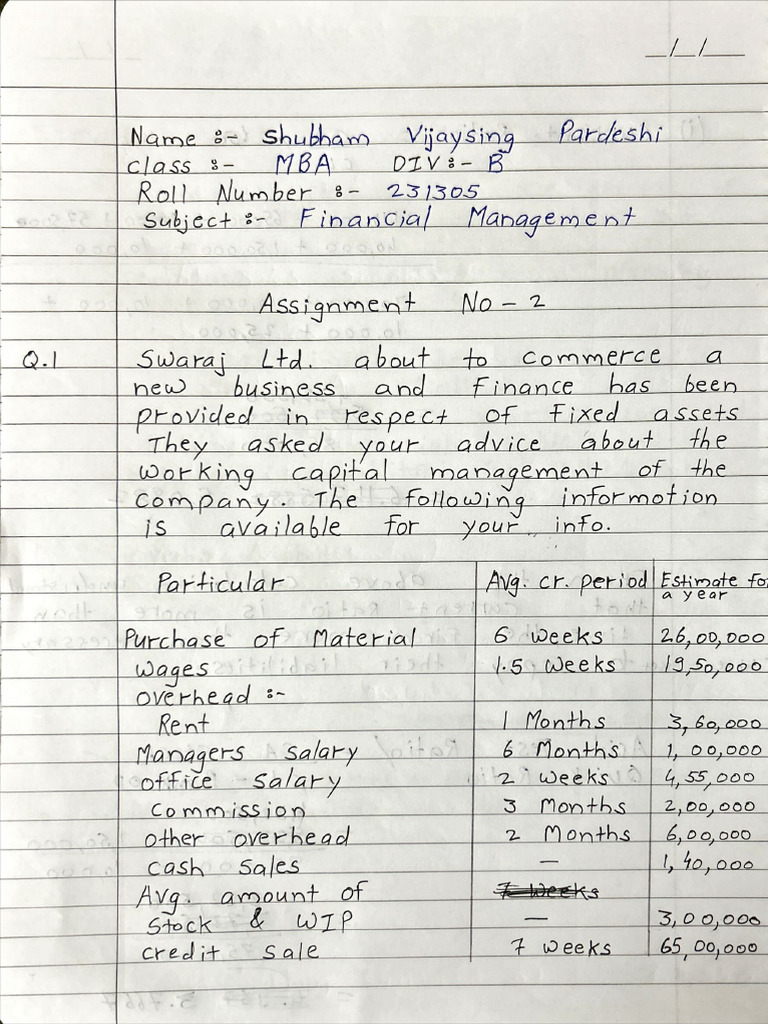 _/_/__
Name :- Shubham Vijaysing Pardeshi
class :- MBA DIV :- B
Roll Number :- 231305
Subject :- Financial Management
Assignment No - 2
Q.1 Swaraj Ltd. about to commerce a
new business and Finance has been
provided in respect of Fixed assets
They asked your advice about the
working capital management of the
company. The following informotion
is available for your info.
Particular Avg. cr. period Estimate for a year
Purchase of Material 6 weeks 26,00,000
wages 1.5 weeks 19,50,000
overhead :-
Rent 1 Months 3,60,000
Managers salary 6 Months 1,00,000
office salary 2 weeks 4,55,000
commission 3 Months 2,00,000
other overhead 2 Months 6,00,000
cash sales — 1,40,000
Avg. amount of 7 weeks
stock & WIP — 3,00,000
credit sale 7 weeks 65,00,000